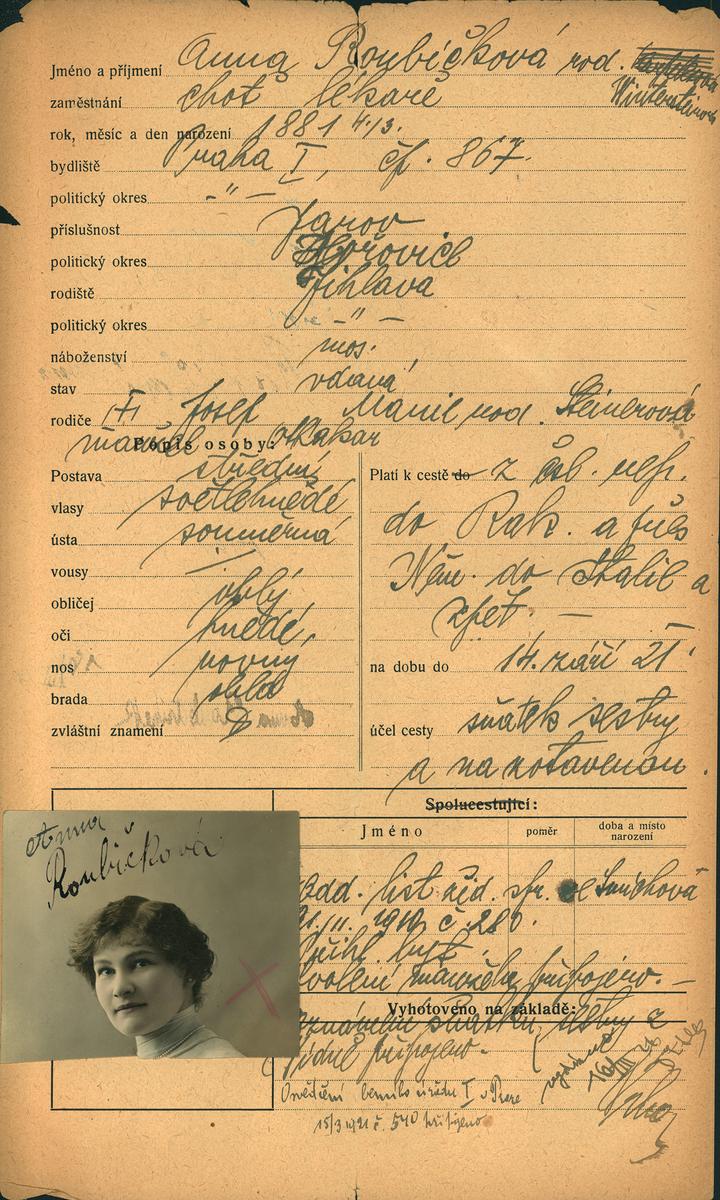 Jméno a příjmení Anna Roubíčková rod.
Winternitzová
zaměstnání choť lékaře
rok, měsíc a den narození 1881 4/3.
bydliště Praha I, čp. 867.
politický okres -"-
příslušnost Jarov
politický okres Hořovice
rodiště Jihlava
politický okres -"-
náboženství mos.
stav vdaná
rodiče Josef Marie rod. Steinerová
manžel Otakar
Popis osoby:
Postava střední
vlasy světlehnědé
ústa souměrná
vousy /
obličej oblý
oči hnědé
nos rovný
brada oblá
zvláštní znamení
Platí k cestě do z čsl. rep.
do Rak. a přes
Něm. do Italie a
zpět. —
na dobu do 14. září 21
účel cesty sňatek sestry
a na zotavenou.
Spolucestující:
Jméno poměr doba a místo narození
Anna
Roubíčková
odd. list z Smíchova
1919 č. 280.
Přihl. list
svolení manžela připojeno. —
Vyhotoveno na základě:
oznámení sňatku sestry z
Vídně připojeno.
Osvědčení berního úřadu I v Praze
15/3 1921 č. 540 připojeno